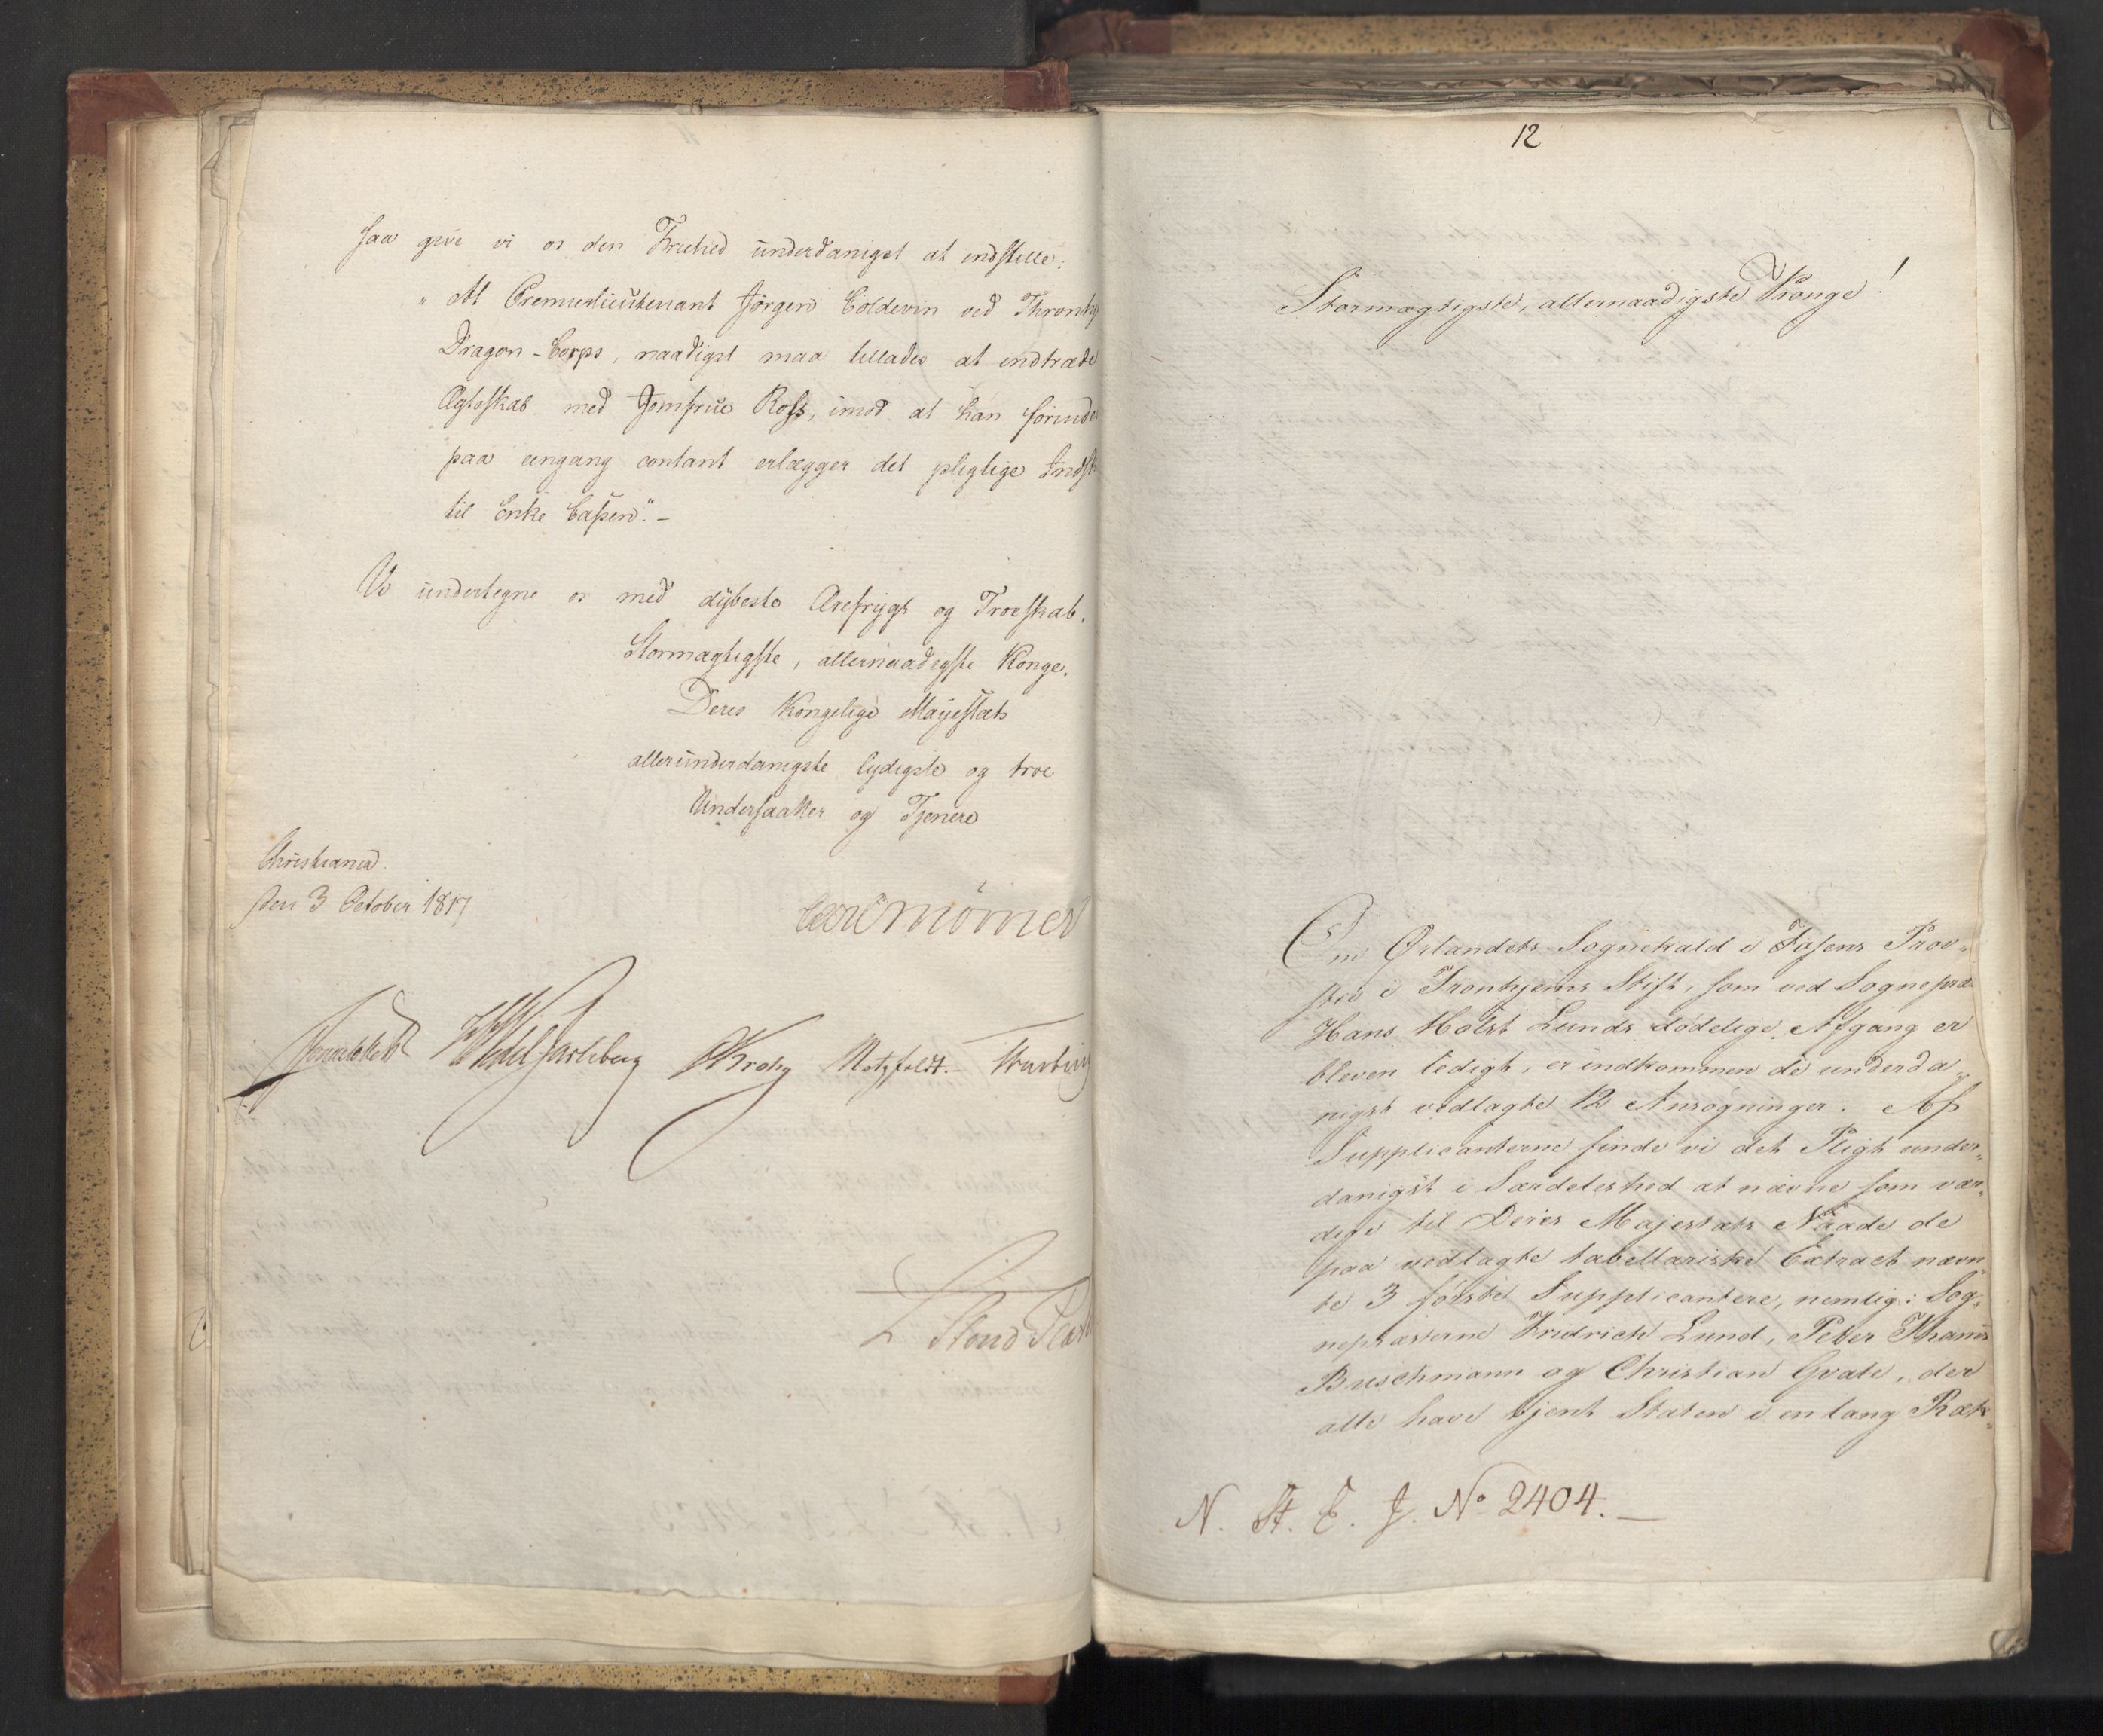 saa give vi os den Friehed underdanigst at indstille:
"At Premierlieutenant Jørgen Coldevin ved Thronhj
Dragon-Corps, naadigst maa tillades at indtræde
Ægteskab med Jomfrue Ross, imod at han forinden
paa eengang contant erlægger det pligtige Indsk
til Enke Cassen". -
Vi undertegne os med dybeste Ærefrygt og Troeskab.
Stormægtigste, allernaadigste Konge.
Deres Kongelige Majestæts
allerunderdanigste lydigste og troe
Undersaatter og Tjenere
Christiania.
den 3 October 1817
Carl Mörner
Sommerhielm HWedel Jarlsberg Krohg Motzfeldt. -
12
Stormægtigste, allernaadigste Konge!
Om Ørlandets Sognekald i Fosens Prov-
stie i Tronhjems Stift, som ved Sognepræst
Hans Holst Lunds dødelige Afgang er
bleven ledigt, er indkommen de underda-
nigst vedlagte 12 Ansøgninger. Af
Supplicanterne finde vi det Pligt under-
danigst i Særdeleshed at nævne som vær-
dige til Deres Majestæts Naade de
paa vedlagte tabellariske Extract nævn-
te 3 første Supplicantere, nemlig: Sog-
nepræsterne Fridrich Lund, Peter Thams
Buschmann og Christian Grate, der
alle have tjent Staten i en lang Ræk-
N. St. E. J. No 2404. -